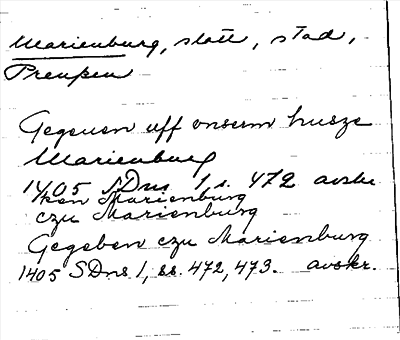 Marienburg, slott, stad,
Preußen
Gegeuen uff vnserm husze
Marienburg
1405 SDns 1, s. 472 avskr
ken Marienburg
czu Marienburg
Gegeben czu Marienburg
1405 SDns 1, ss. 472, 473. avskr.